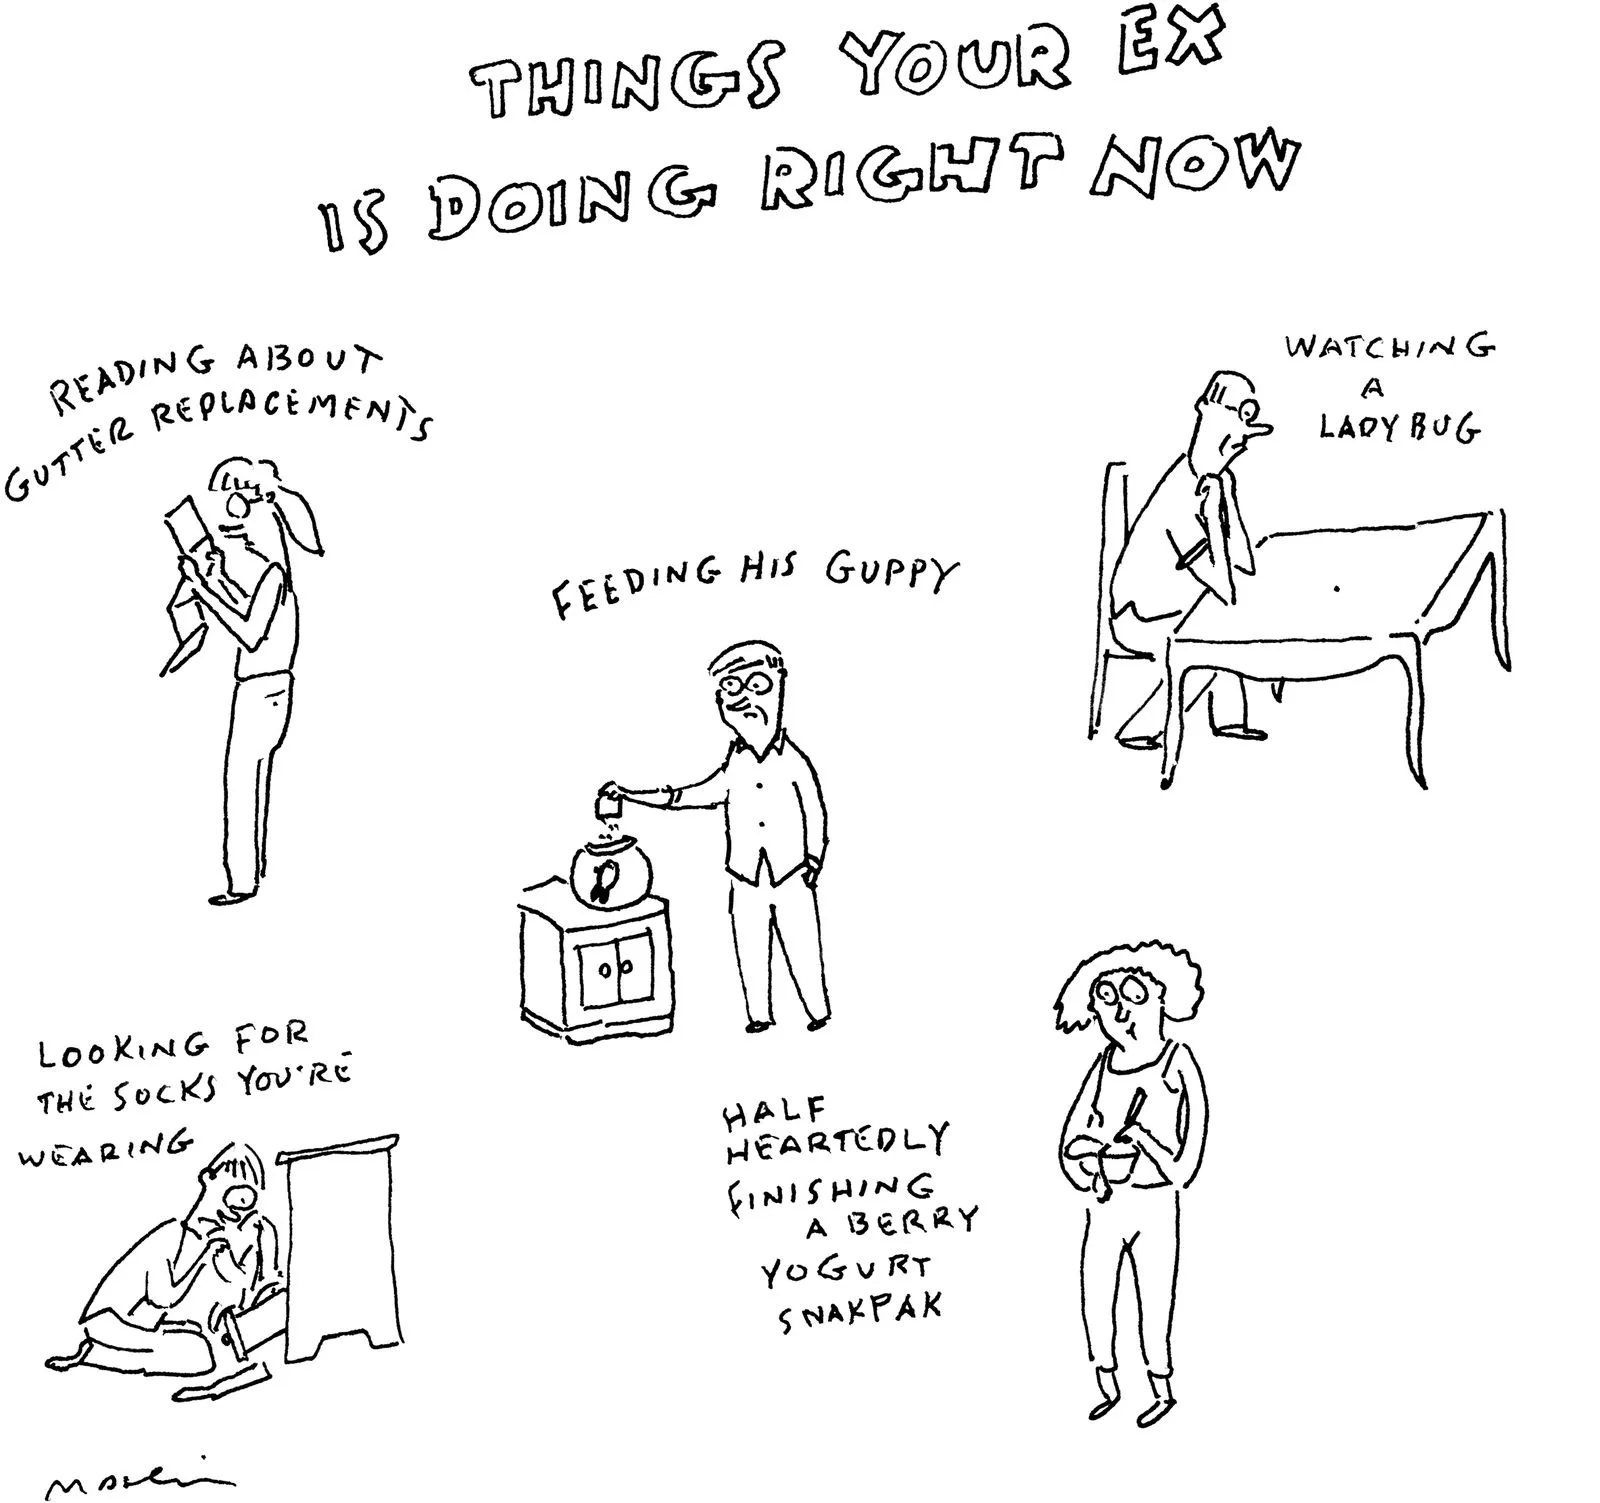 THINGS YOUR EX
IS DOING RIGHT NOW
READING ABOUT
GUTTER REPLACEMENTS
WATCHING
A
LADYBUG
FEEDING HIS GUPPY
LOOKING FOR
THE SOCKS YOU'RE
WEARING
HALF
HEARTEDLY
FINISHING
A BERRY
YOGURT
SNAKPAK